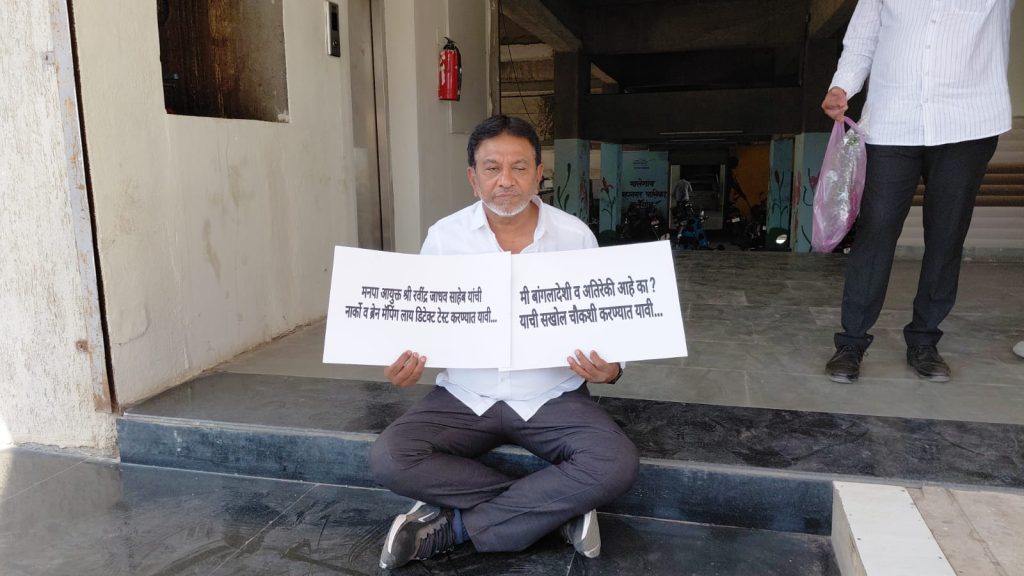 मनपा आयुक्त श्री रवींद्र जाधव साहेब यांची
नार्को व ब्रेन मॅपिंग लाय डिटेक्ट टेस्ट करण्यात यावी...
मी बांगलादेशी व अतिरेकी आहे का ?
याची सखोल चौकशी करण्यात यावी...
मालेगाव